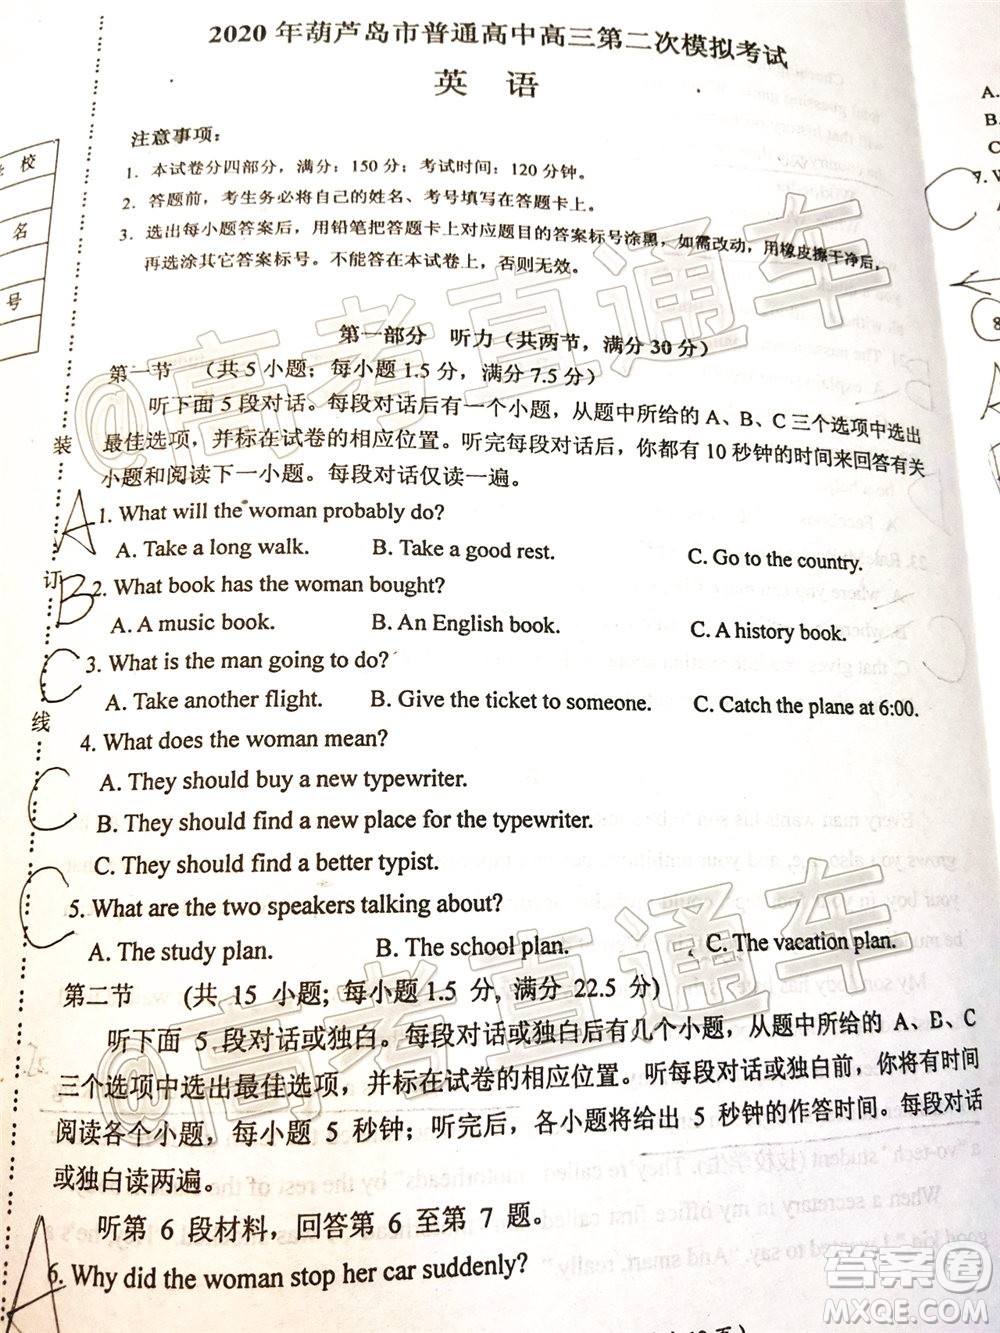 2020年葫芦岛市普通高中高三第二次模拟考试
英 语
注意事项：
1. 本试卷分四部分，满分：150分；考试时间：120分钟。
2. 答题前，考生务必将自己的姓名、考号填写在答题卡上。
3. 选出每小题答案后，用铅笔把答题卡上对应题目的答案标号涂黑，如需改动，用橡皮擦干净后，
再选涂其它答案标号。不能答在本试卷上，否则无效。
第一部分 听力（共两节，满分30分）
第一节 （共5小题；每小题1.5分，满分7.5分）
听下面5段对话。每段对话后有一个小题，从题中所给的A、B、C三个选项中选出
最佳选项，并标在试卷的相应位置。听完每段对话后，你都有10秒钟的时间来回答有关
小题和阅读下一小题。每段对话仅读一遍。
A
1. What will the woman probably do?
A. Take a long walk. B. Take a good rest. C. Go to the country.
B
2. What book has the woman bought?
A. A music book. B. An English book. C. A history book.
C
3. What is the man going to do?
A. Take another flight. B. Give the ticket to someone. C. Catch the plane at 6:00.
4. What does the woman mean?
A. They should buy a new typewriter.
C
B. They should find a new place for the typewriter.
C. They should find a better typist.
C
5. What are the two speakers talking about?
A. The study plan. B. The school plan. C. The vacation plan.
第二节 (共 15 小题; 每小题1.5 分, 满分 22.5 分)
听下面 5 段对话或独白。每段对话或独白后有几个小题，从题中所给的 A、B、C
三个选项中选出最佳选项，并标在试卷的相应位置。听每段对话或独白前，你将有时间
阅读各个小题，每小题 5 秒钟；听完后，各小题将给出 5 秒钟的作答时间。每段对话
或独白读两遍。
听第 6 段材料，回答第 6 至第 7 题。
A
6. Why did the woman stop her car suddenly?
校
名
号
装
订
线
@高考直通车
@高考直通车
答案圈
MXQE.COM
A.
B.
C
C
7. W
8